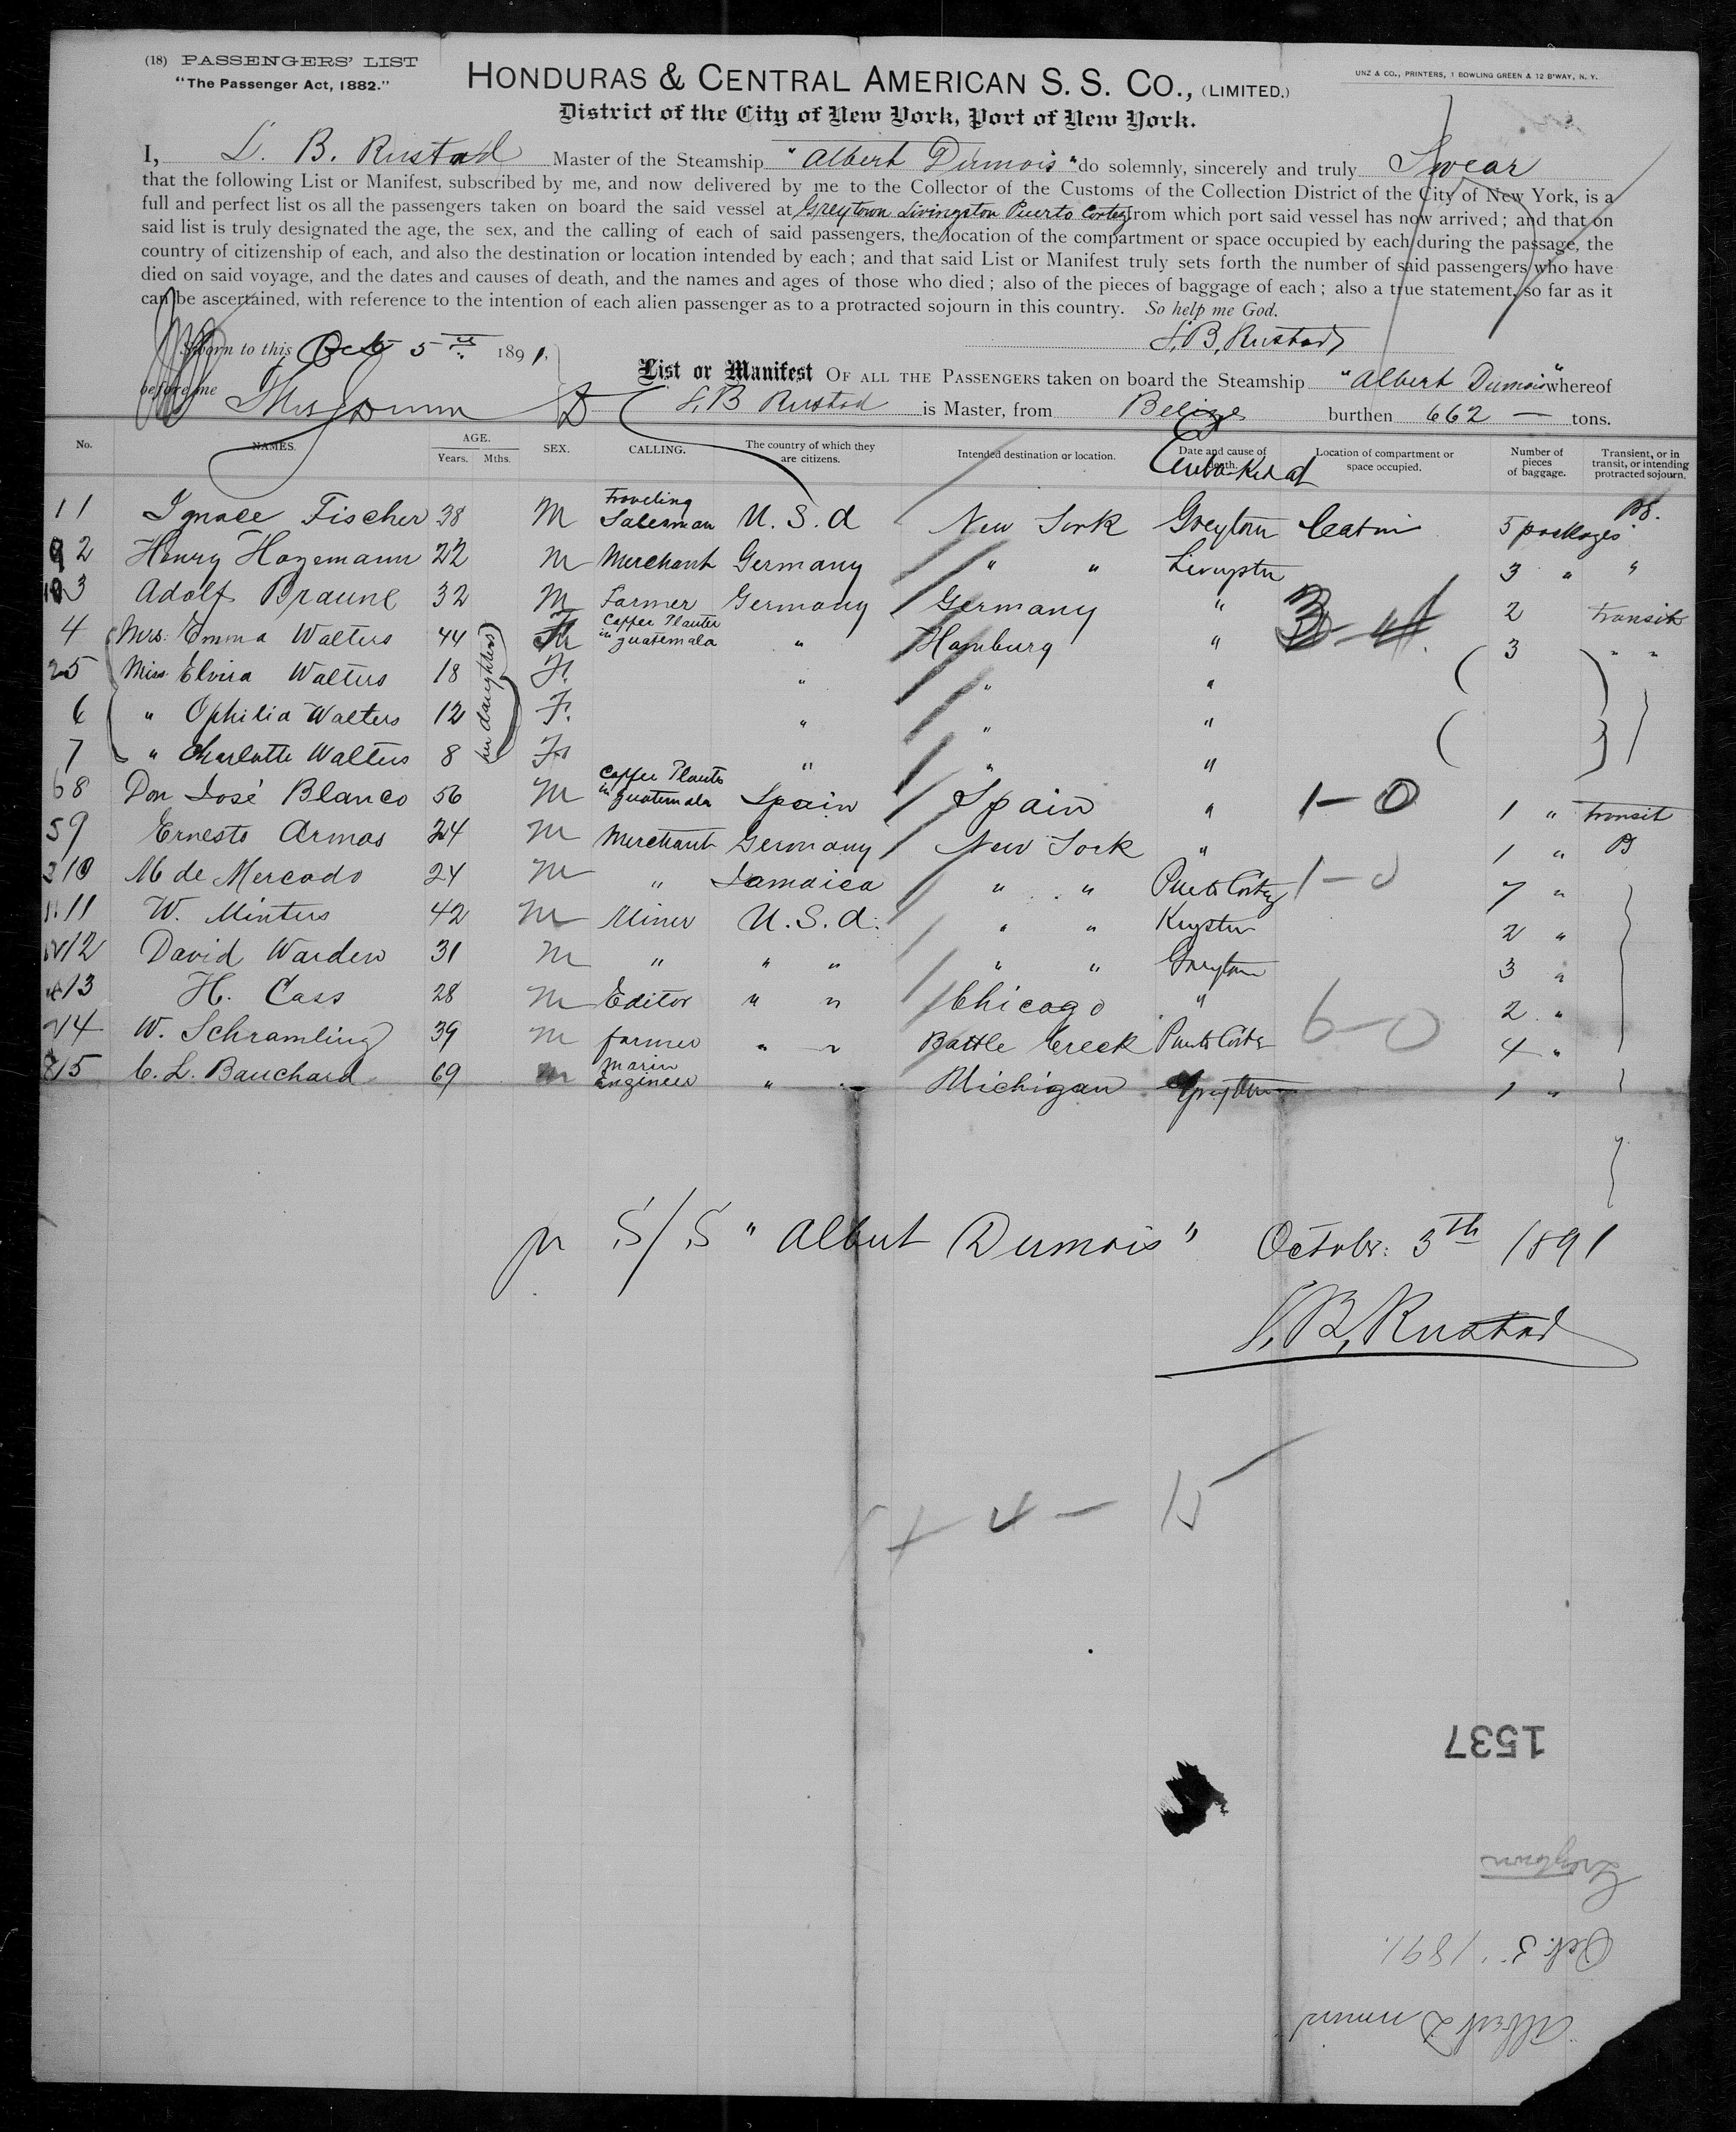 (18) PASSENGERS' LIST
"The Passenger Act, 1882."
HONDURAS & CENTRAL AMERICAN S. S. CO., (LIMITED.)
UNZ & CO., PRINTERS, 1 BOWLING GREEN & 12 B'WAY, N. Y.
District of the City of New York, Port of New York.
I, S. B. Rustad Master of the Steamship "Albert Dumois" do solemnly, sincerely and truly Swear
that the following List or Manifest, subscribed by me, and now delivered by me to the Collector of the Customs of the Collection District of the City of New York, is a
full and perfect list os all the passengers taken on board the said vessel at Greytown Livingston Puerto Cortez from which port said vessel has now arrived; and that on
said list is truly designated the age, the sex, and the calling of each of said passengers, the location of the compartment or space occupied by each during the passage, the
country of citizenship of each, and also the destination or location intended by each; and that said List or Manifest truly sets forth the number of said passengers who have
died on said voyage, and the dates and causes of death, and the names and ages of those who died; also of the pieces of baggage of each; also a true statement, so far as it
can be ascertained, with reference to the intention of each alien passenger as to a protracted sojourn in this country. So help me God.
S. B. Rustad
Sworn to this Oct 5th 1891,
before me
List or Manifest OF ALL THE PASSENGERS taken on board the Steamship "Albert Dumois" whereof
S. B Rustad is Master, from Belize burthen 662 — tons.
No. NAMES. AGE. Years. Mths. SEX. CALLING. The country of which they are citizens. Intended destination or location. Date and cause of death. Location of compartment or space occupied. Number of pieces of baggage. Transient, or in transit, or intending protracted sojourn.
Embarked at
1 1 Ignace Fischer 38 M Traveling Salesman U. S. A New York Greytown Cabin 5 packages
9 2 Henry Hagemann 22 M Merchant Germany " " Livingston 3 " "
10 3 Adolf Braune 32 M Farmer Germany Germany " 2 transit
4 Mrs. Emma Walters 44 F Coffee Planter in Guatemala " Hamburg " 3 " "
2 5 Miss Elvira Walters 18 F. " " "
6 " Ophilia Walters 12 F. " " "
7 " Charlotte Walters 8 F. " " "
her daughters
6 8 Don José Blanco 56 M Coffee Planter in Guatemala Spain Spain " 1-0 1 " transit
5 9 Ernesto Armas 24 M Merchant Germany New York " 1 "
3 10 M de Mercado 24 M " Jamaica " " Puerto Cortez 1-0 7 "
11 11 W. Minters 42 M Miner U. S. A. " " 2 "
12 David Warden 31 M " " " " " Greytown 3 "
13 H. Cass 28 M Editor " " Chicago " 2 "
14 W. Schramling 39 M farmer " " Battle Creek Puerto Cortez 6-0 4 "
8 15 C. L. Bauchard 69 M Marin Engineer " " Michigan Greytown 1 "
pr S/S "Albert Dumois" October: 5th 1891
S. B. Rustad
4 - 15
1537
Greytown
Oct. 5. 1891.
Albert Dumois